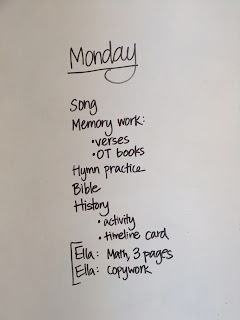 Monday
Song
Memory work:
• verses
• OT books
Hymn practice
Bible
History
• activity
• timeline card
Ella: Math, 3 pages
Ella: Copywork